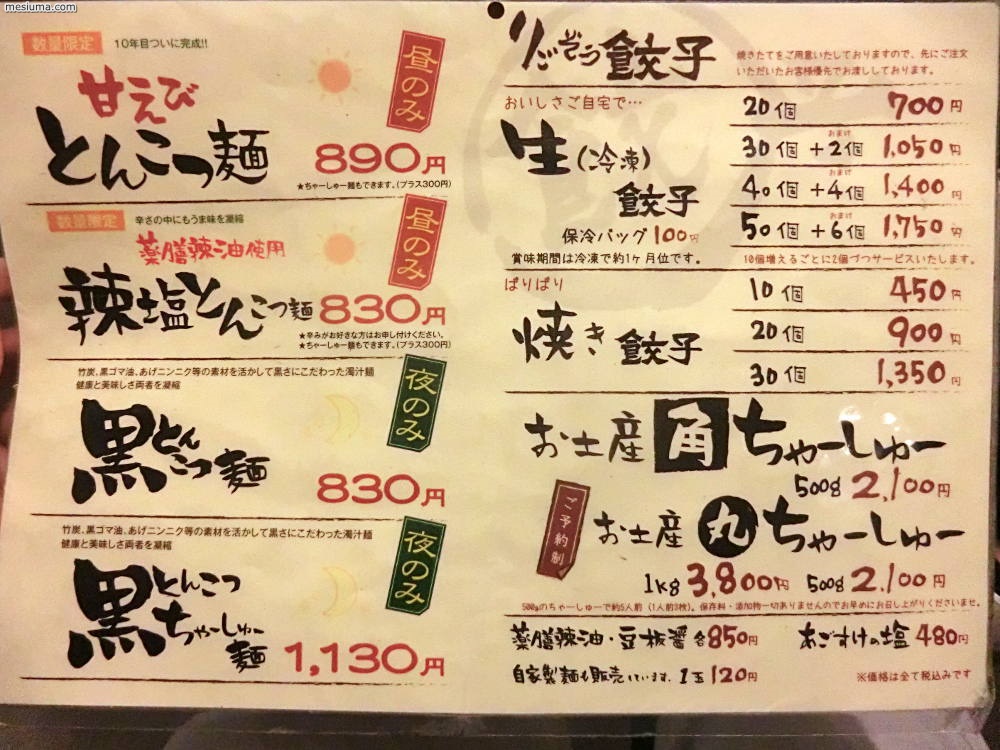 mesiuma.com
数量限定 10年目ついに完成!!
甘えび
とんこつ麺
昼のみ
890円
★ちゃーしゅー麺もできます。(プラス300円)
数量限定 辛さの中にもうま味を凝縮
薬膳辣油使用
辣塩とんこつ麺
昼のみ
830円
★辛みがお好きな方はお申し付けください。
★ちゃーしゅー麺もできます。(プラス300円)
竹炭、黒ゴマ油、あげニンニク等の素材を活かして黒さにこだわった濁汁麺
健康と美味しさ両者を凝縮
黒とんこつ麺
夜のみ
830円
竹炭、黒ゴマ油、あげニンニク等の素材を活かして黒さにこだわった濁汁麺
健康と美味しさ両者を凝縮
黒とんこつちゃーしゅー麺
夜のみ
1,130円
りごぞう餃子
焼きたてをご用意いたしておりますので、先にご注文
いただいたお客様優先でお渡ししております。
おいしさご自宅で…
生(冷凍)
餃子
保冷バッグ100円
賞味期間は冷凍で約1ヶ月位です。
20個 700円
おまけ
30個+2個 1,050円
おまけ
40個+4個 1,400円
おまけ
50個+6個 1,750円
10個増えるごとに2個づつサービスいたします。
ぱりぱり
焼き餃子
10個 450円
20個 900円
30個 1,350円
お土産 角 ちゃーしゅー
500g 2,100円
ご予約制
お土産 丸 ちゃーしゅー
1kg 3,800円 500g 2,100円
500gのちゃーしゅーで約5人前(1人前3枚)。保存料・添加物一切ありませんのでお早めにお召し上がりくださいませ。
薬膳辣油・豆板醤 各850円 あごすけの塩 480円
自家製麺も販売しています。1玉120円
※価格は全て税込みです